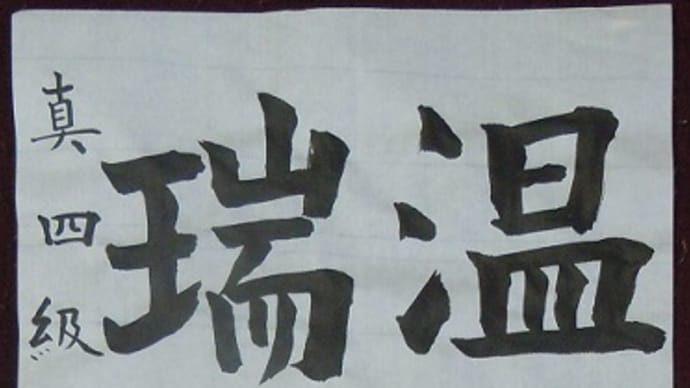 温
瑞
真四級